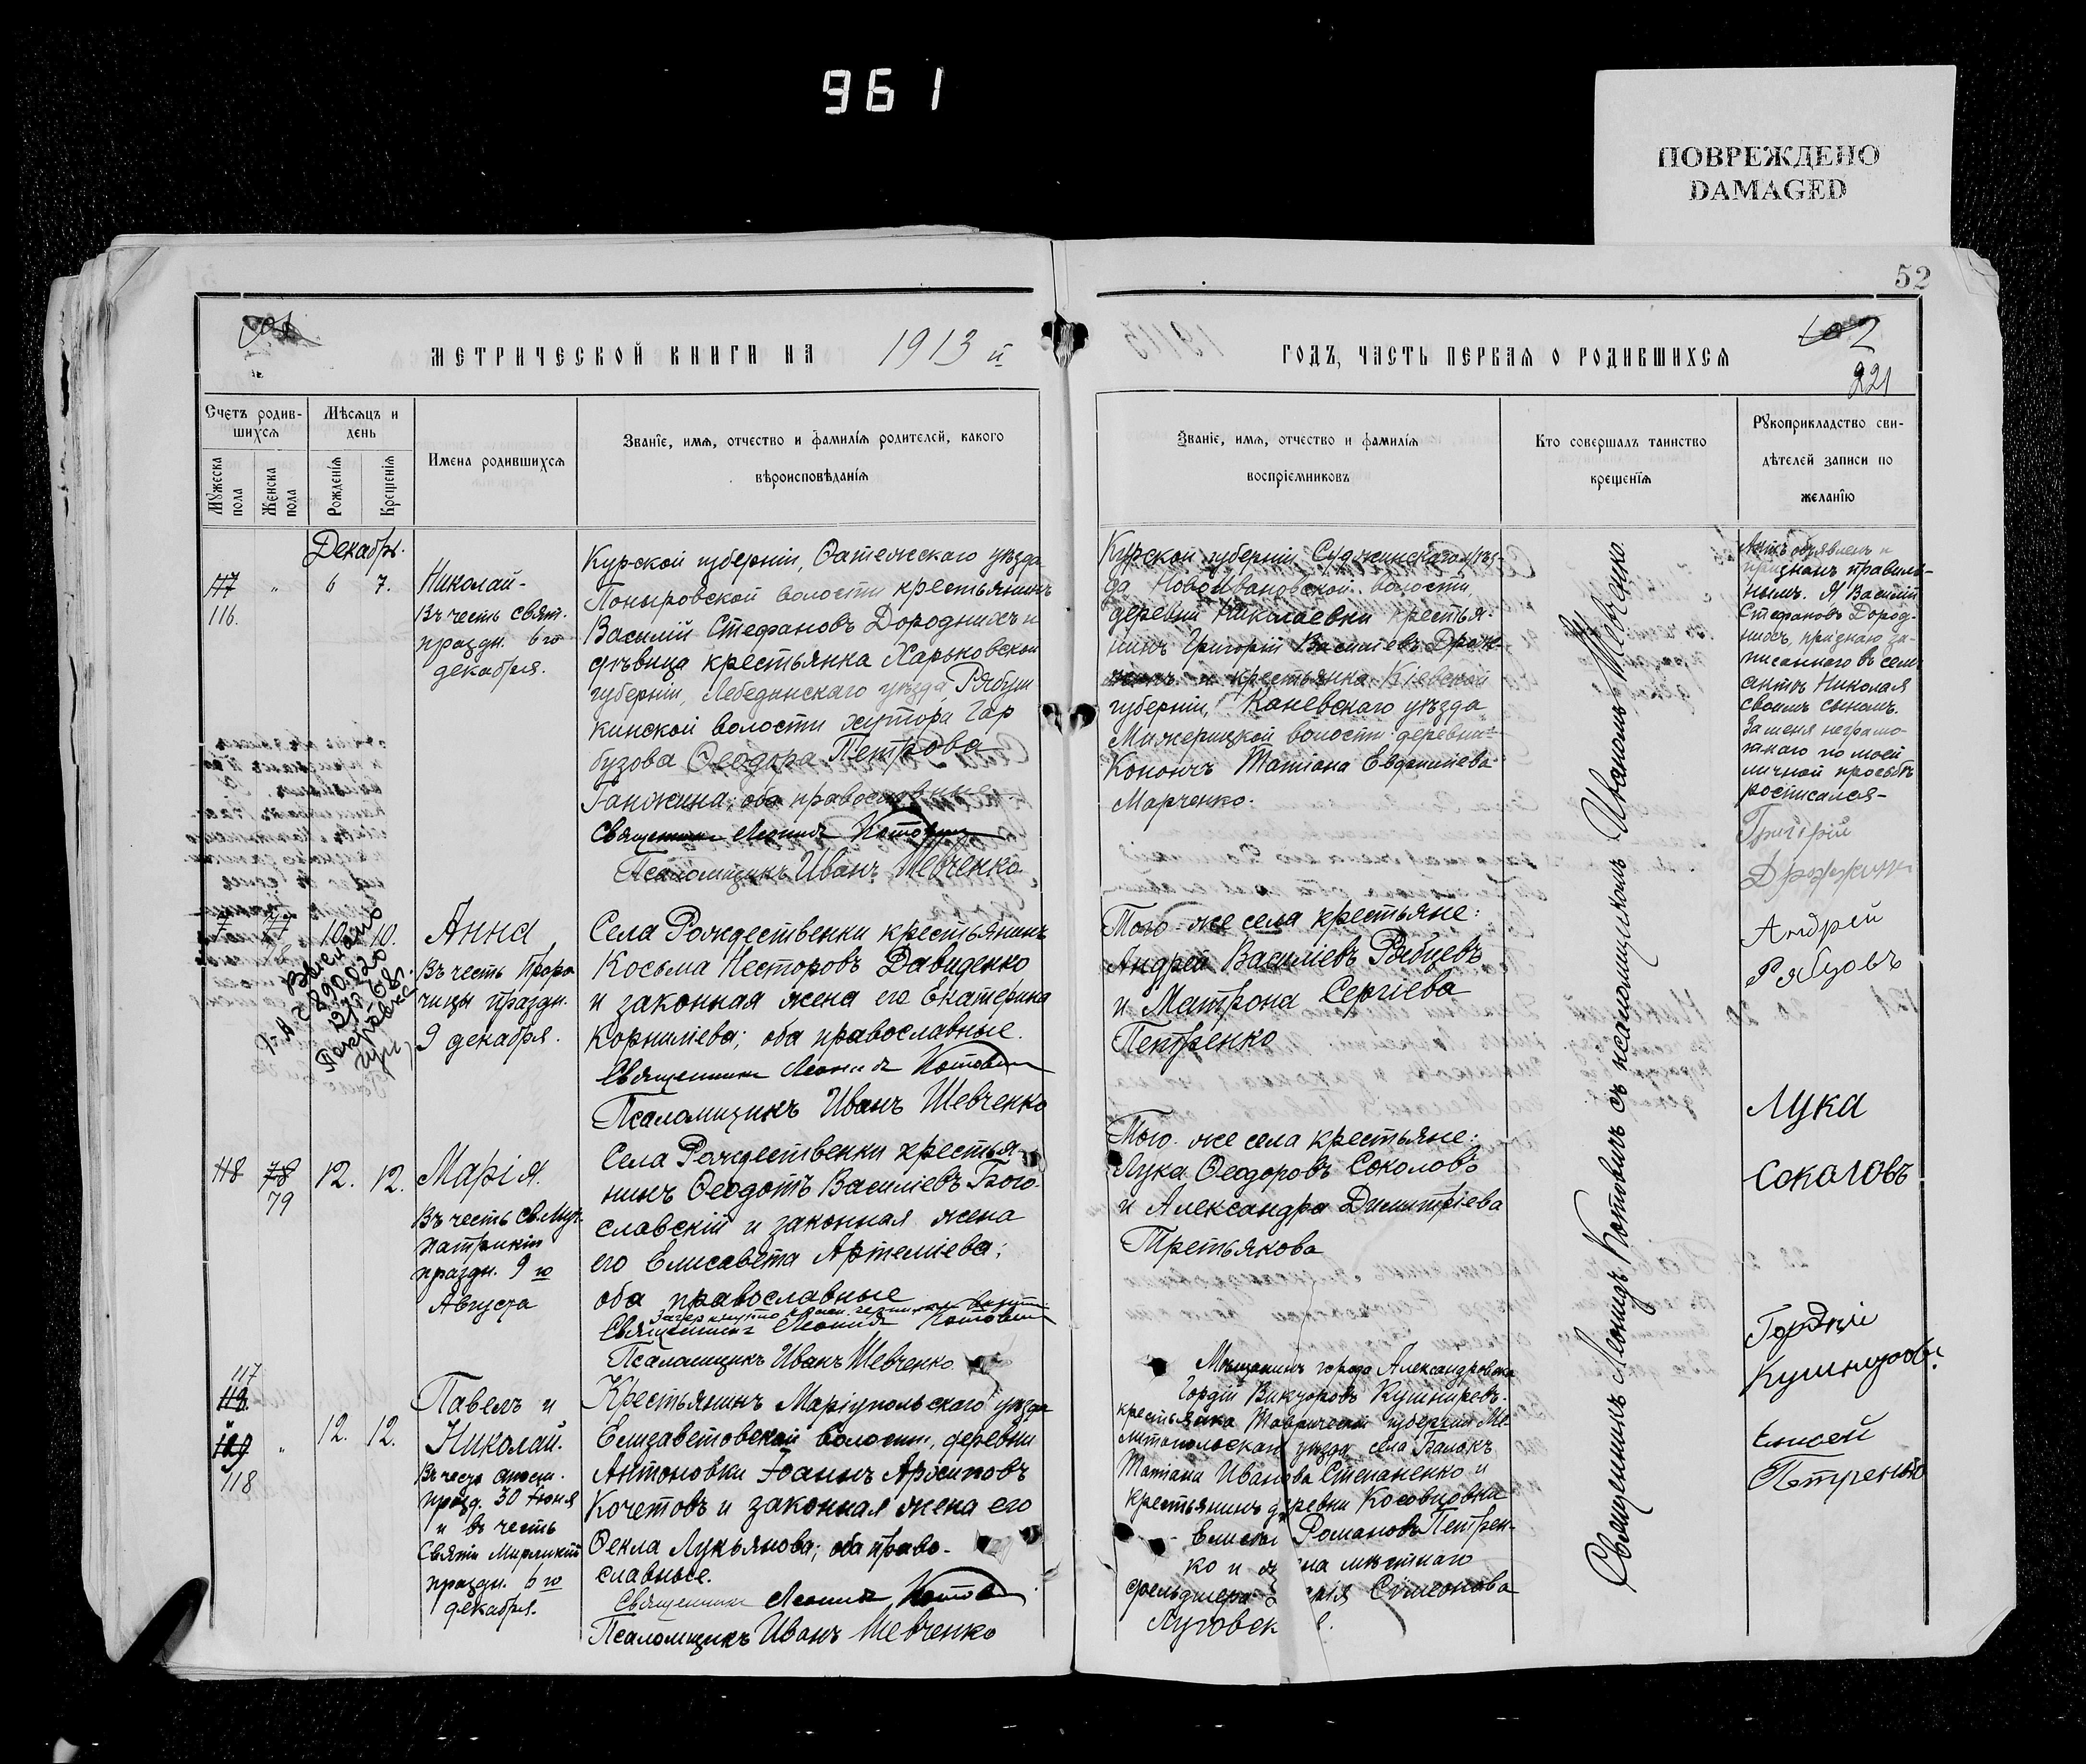 961
ПОВРЕЖДЕНО
DAMAGED
52
МЕТРИЧЕСКОЙ КНИГИ НА 1913 й
ГОДЪ, ЧАСТЬ ПЕРВАЯ О РОДИВШИХСЯ
102
221
Счетъ родив-
шихся
Мѣсяцъ и
день
Мужеска
пола
Женска
пола
Рожденія
Крещенія
Имена родившихся
Званіе, имя, отчество и фамилія родителей, какого
вѣроисповѣданія
Званіе, имя, отчество и фамилія
воспріемниковъ
Кто совершалъ таинство
крещенія
Рукоприкладство сви-
дѣтелей записи по
желанію
Декабрь.
117 " 6 7.
116.
Николай-
Въ честь свят.
праздн. 6 го
декабря.
Курской губерніи, Фатежскаго уѣзда
Поныровской волости крестьянинъ
Василій Стефановъ Дородныхъ и
дѣвица крестьянка Харьковской
губерніи, Лебединскаго уѣзда Рябуш
кинской волости хутора Гар
бузова Ѳеодора Петрова
Ганжина; оба православные.
Священникъ Леонидъ Котовичъ
Псаломщикъ Иванъ Шевченко
Курской губерніи Суджинскаго уѣз-
да Новоивановской волости,
деревни Николаевки крестья-
нинъ Григорій Василіевъ
и крестьянка Кіевской
губерніи, Каневскаго уѣзда
волости деревни
Кононча Татіана Евдокиміева
Марченко.
Актъ объявленъ и
признанъ правиль-
нымъ. Я Василій
Стефановъ Дород-
ныхъ, признаю за-
писаннаго въ семъ
актѣ Николая
своимъ сыномъ.
За меня неграмо-
тнаго по моей
личной просьбѣ
росписался-
Григорій
7 77 10. 10.
Анна
Въ честь Проро
чицы праздн.
9 декабря.
Села Рождественки крестьянинъ
Косьма Несторовъ Давиденко
и законная жена его Екатерина
Корниліева; оба православные.
Священникъ Леонидъ Котовичъ
Псаломщикъ Иванъ Шевченко
Того-же села крестьяне:
Андрей Василіевъ Рябцевъ
и Матрона Сергіева
Петренко
Андрей
Рябцовъ
118 78 12. 12.
79
Марія.
Въ честь св. Муч.
Патрикіи
праздн. 9 го
Августа
Села Рождественки крестья-
нинъ Ѳеодотъ Василіевъ Бого-
славскій и законная жена
его Елисавета Артеміева;
оба православные
Священникъ Леонидъ Котовичъ
Псаломщикъ Иванъ Шевченко
Того-же села крестьяне:
Лука Ѳеодоровъ Соколовъ
и Александра Димитріева
Третьякова
Лука
Соколовъ
117
118
119 " 12. 12.
118
Павелъ и
Николай.
Въ честь апост.
празд. 30 Іюня
и въ честь
Святит. Мирликій
праздн. 6 го
декабря.
Крестьянинъ Маріупольскаго уѣзда
Елизаветовской волости, деревни
Антоновки Іоаннъ Архиповъ
Кочетовъ и законная жена его
Ѳекла Лукьянова; оба право-
славные.
Священникъ Леонидъ Котовичъ
Псаломщикъ Иванъ Шевченко
Мѣщанинъ города Александровска
Гордій Викторовъ Кушниревъ.
крестьянка Таврической губерніи Ме-
литопольскаго уѣзда села Балокъ
Татіана Иванова Степаненко и
крестьянинъ деревни Косовцовки
Елисей Романовъ Петрен-
ко и жена мѣстнаго
фельдшера Симеонова
Гордій
Елисей
Петренко
Священникъ Леонидъ Котовичъ съ псаломщикомъ Иваномъ Шевченко